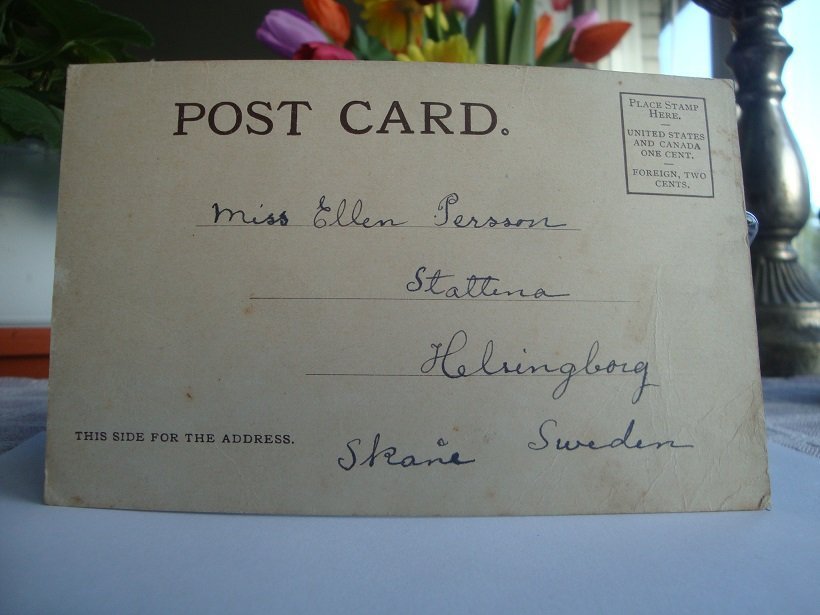 POST CARD.
PLACE STAMP
HERE.
UNITED STATES
AND CANADA
ONE CENT.
FOREIGN, TWO
CENTS.
Miss Ellen Persson
Stattena
Helsingborg
THIS SIDE FOR THE ADDRESS.
Skåne Sweden